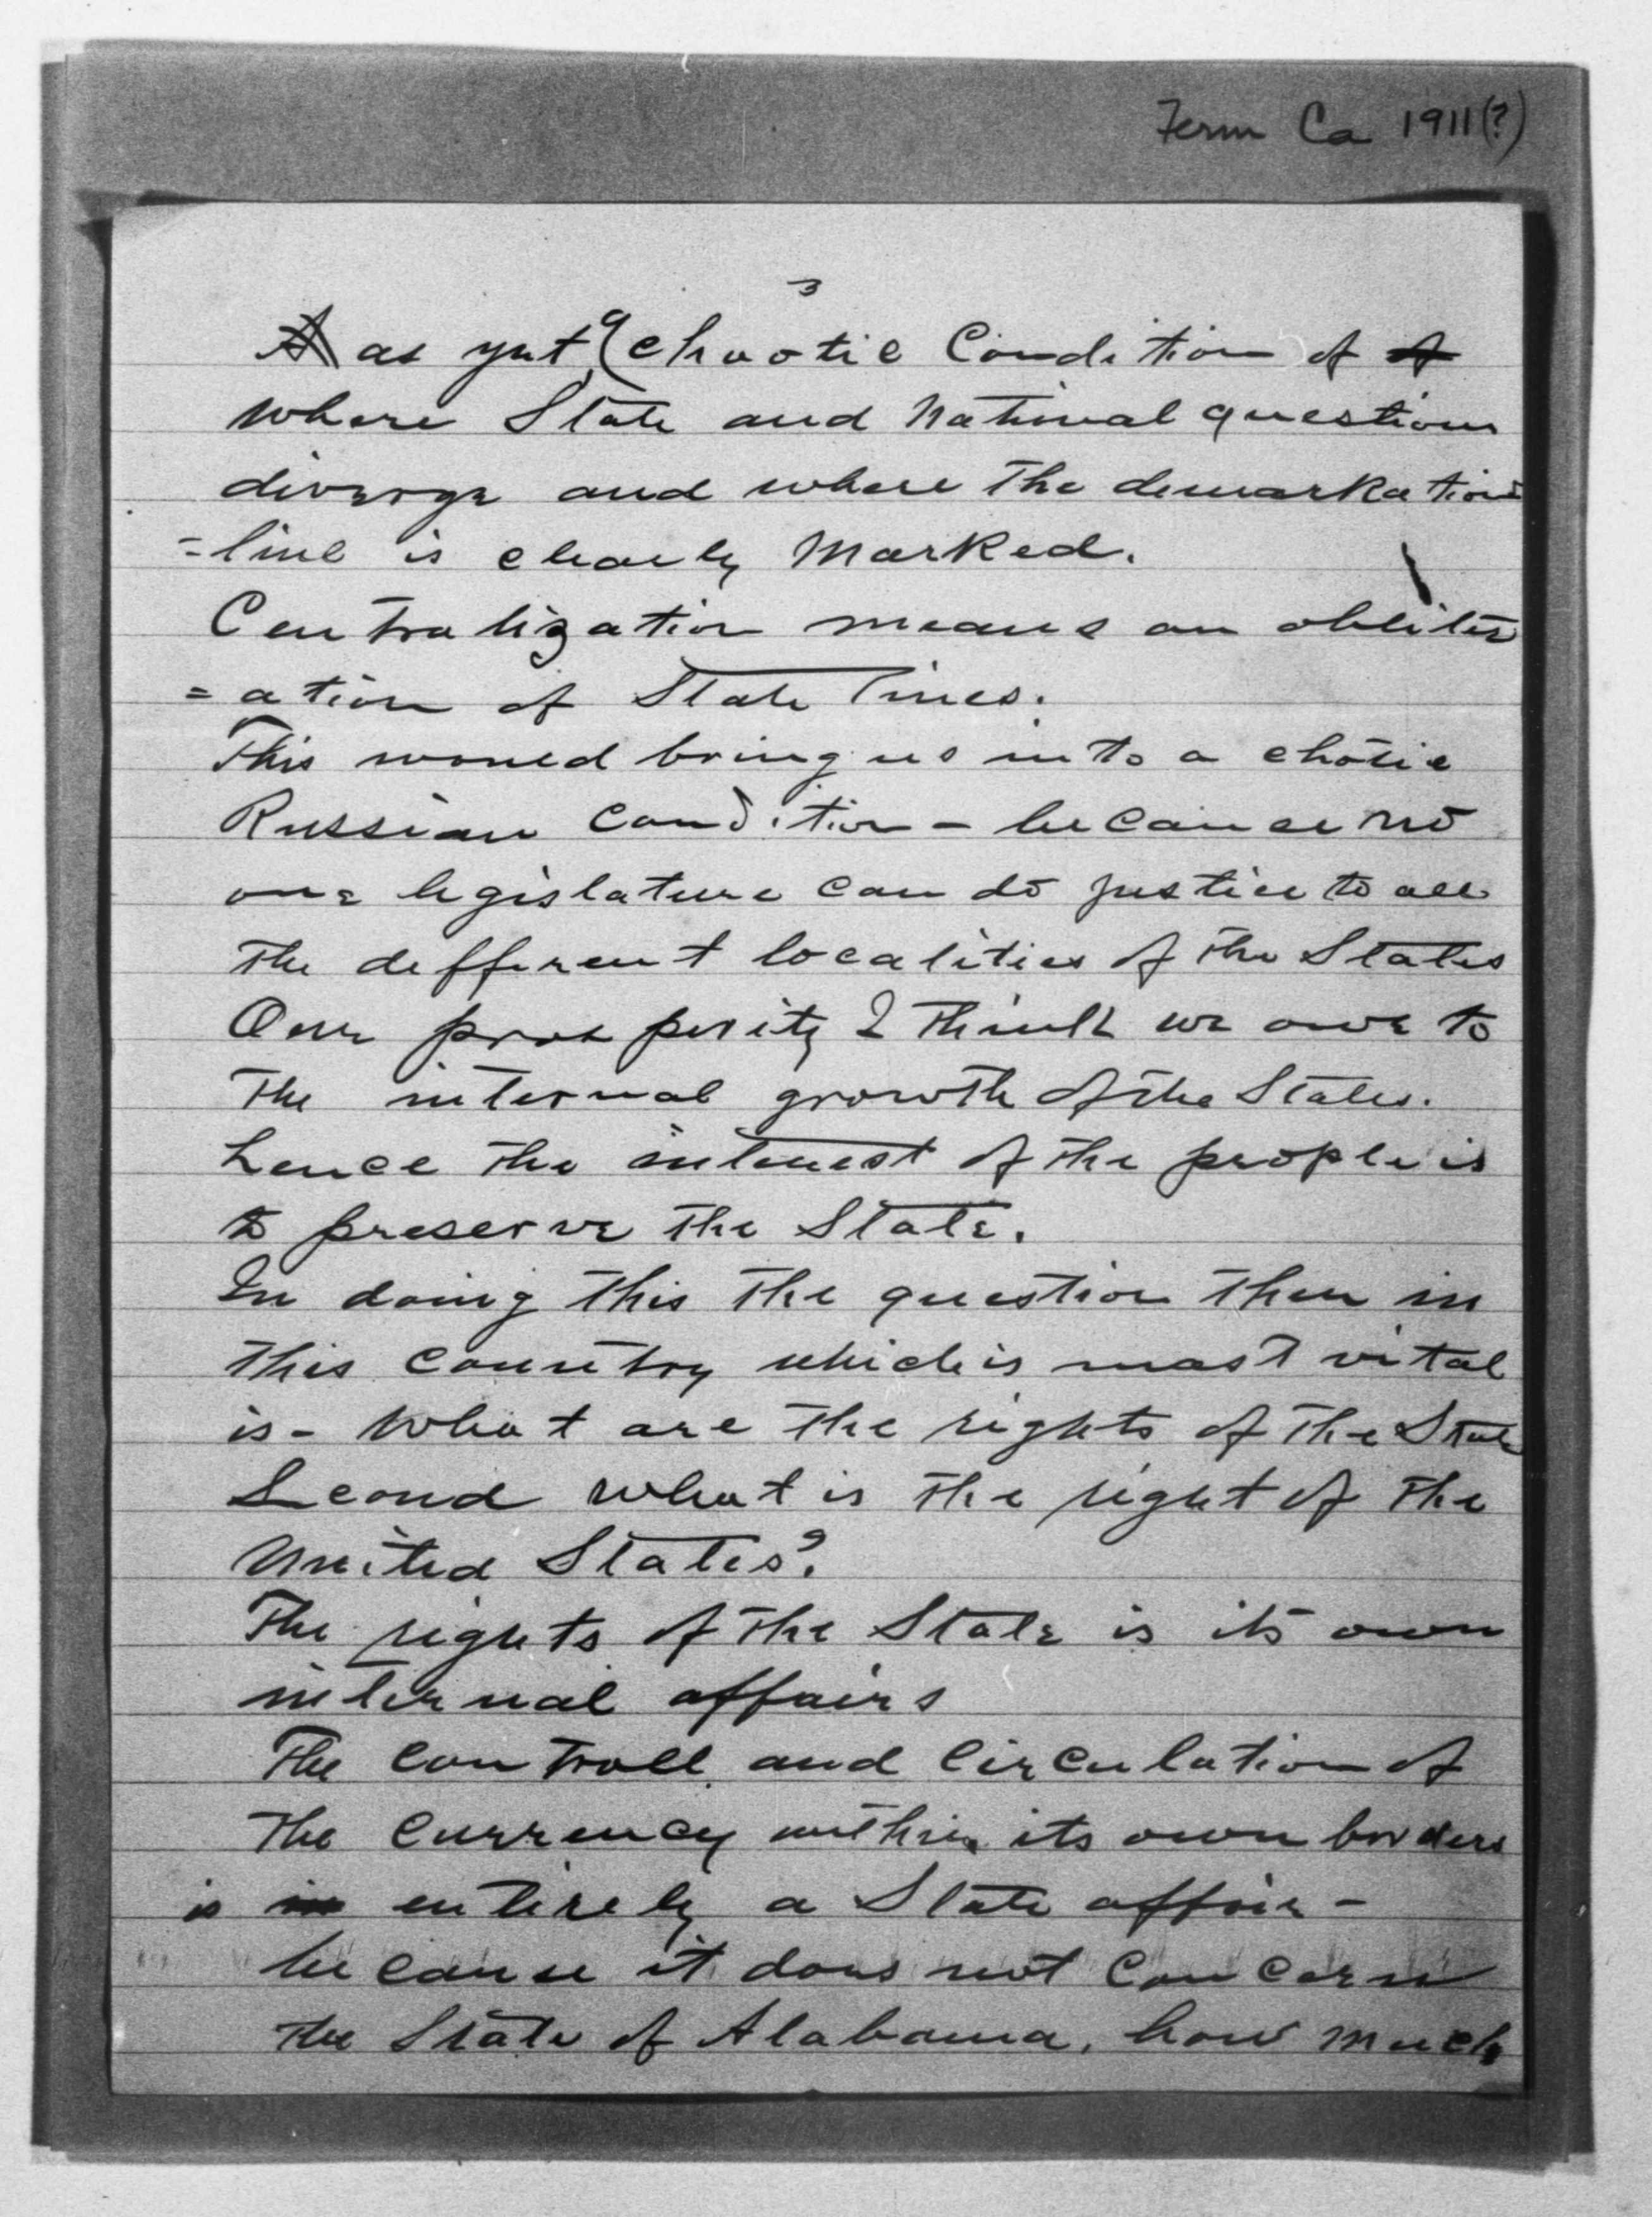 Term Ca 1911(?)
3
A as yet a chaotic Condition of of
where State and National questions
diverge and where the demarkation
=line is clearly Marked.
Centralization means an obliter
=ation of State lines.
This would bring us into a chotic
Russian condition - because no
one legislature can do justice to all
the different localities of the States
Our prosperity I think we owe to
the internal growth of the States.
hence the interest of the people is
to preserve the State.
In doing this the question then in
this country which is most vital
is - What are the rights of the State
Second what is the right of the
United States?
The rights of the State is its own
internal affairs
The Controll and Circulation of
the Currency within its own borders
is entirely a State affair -
because it does not Concern
the State of Alabama, how much